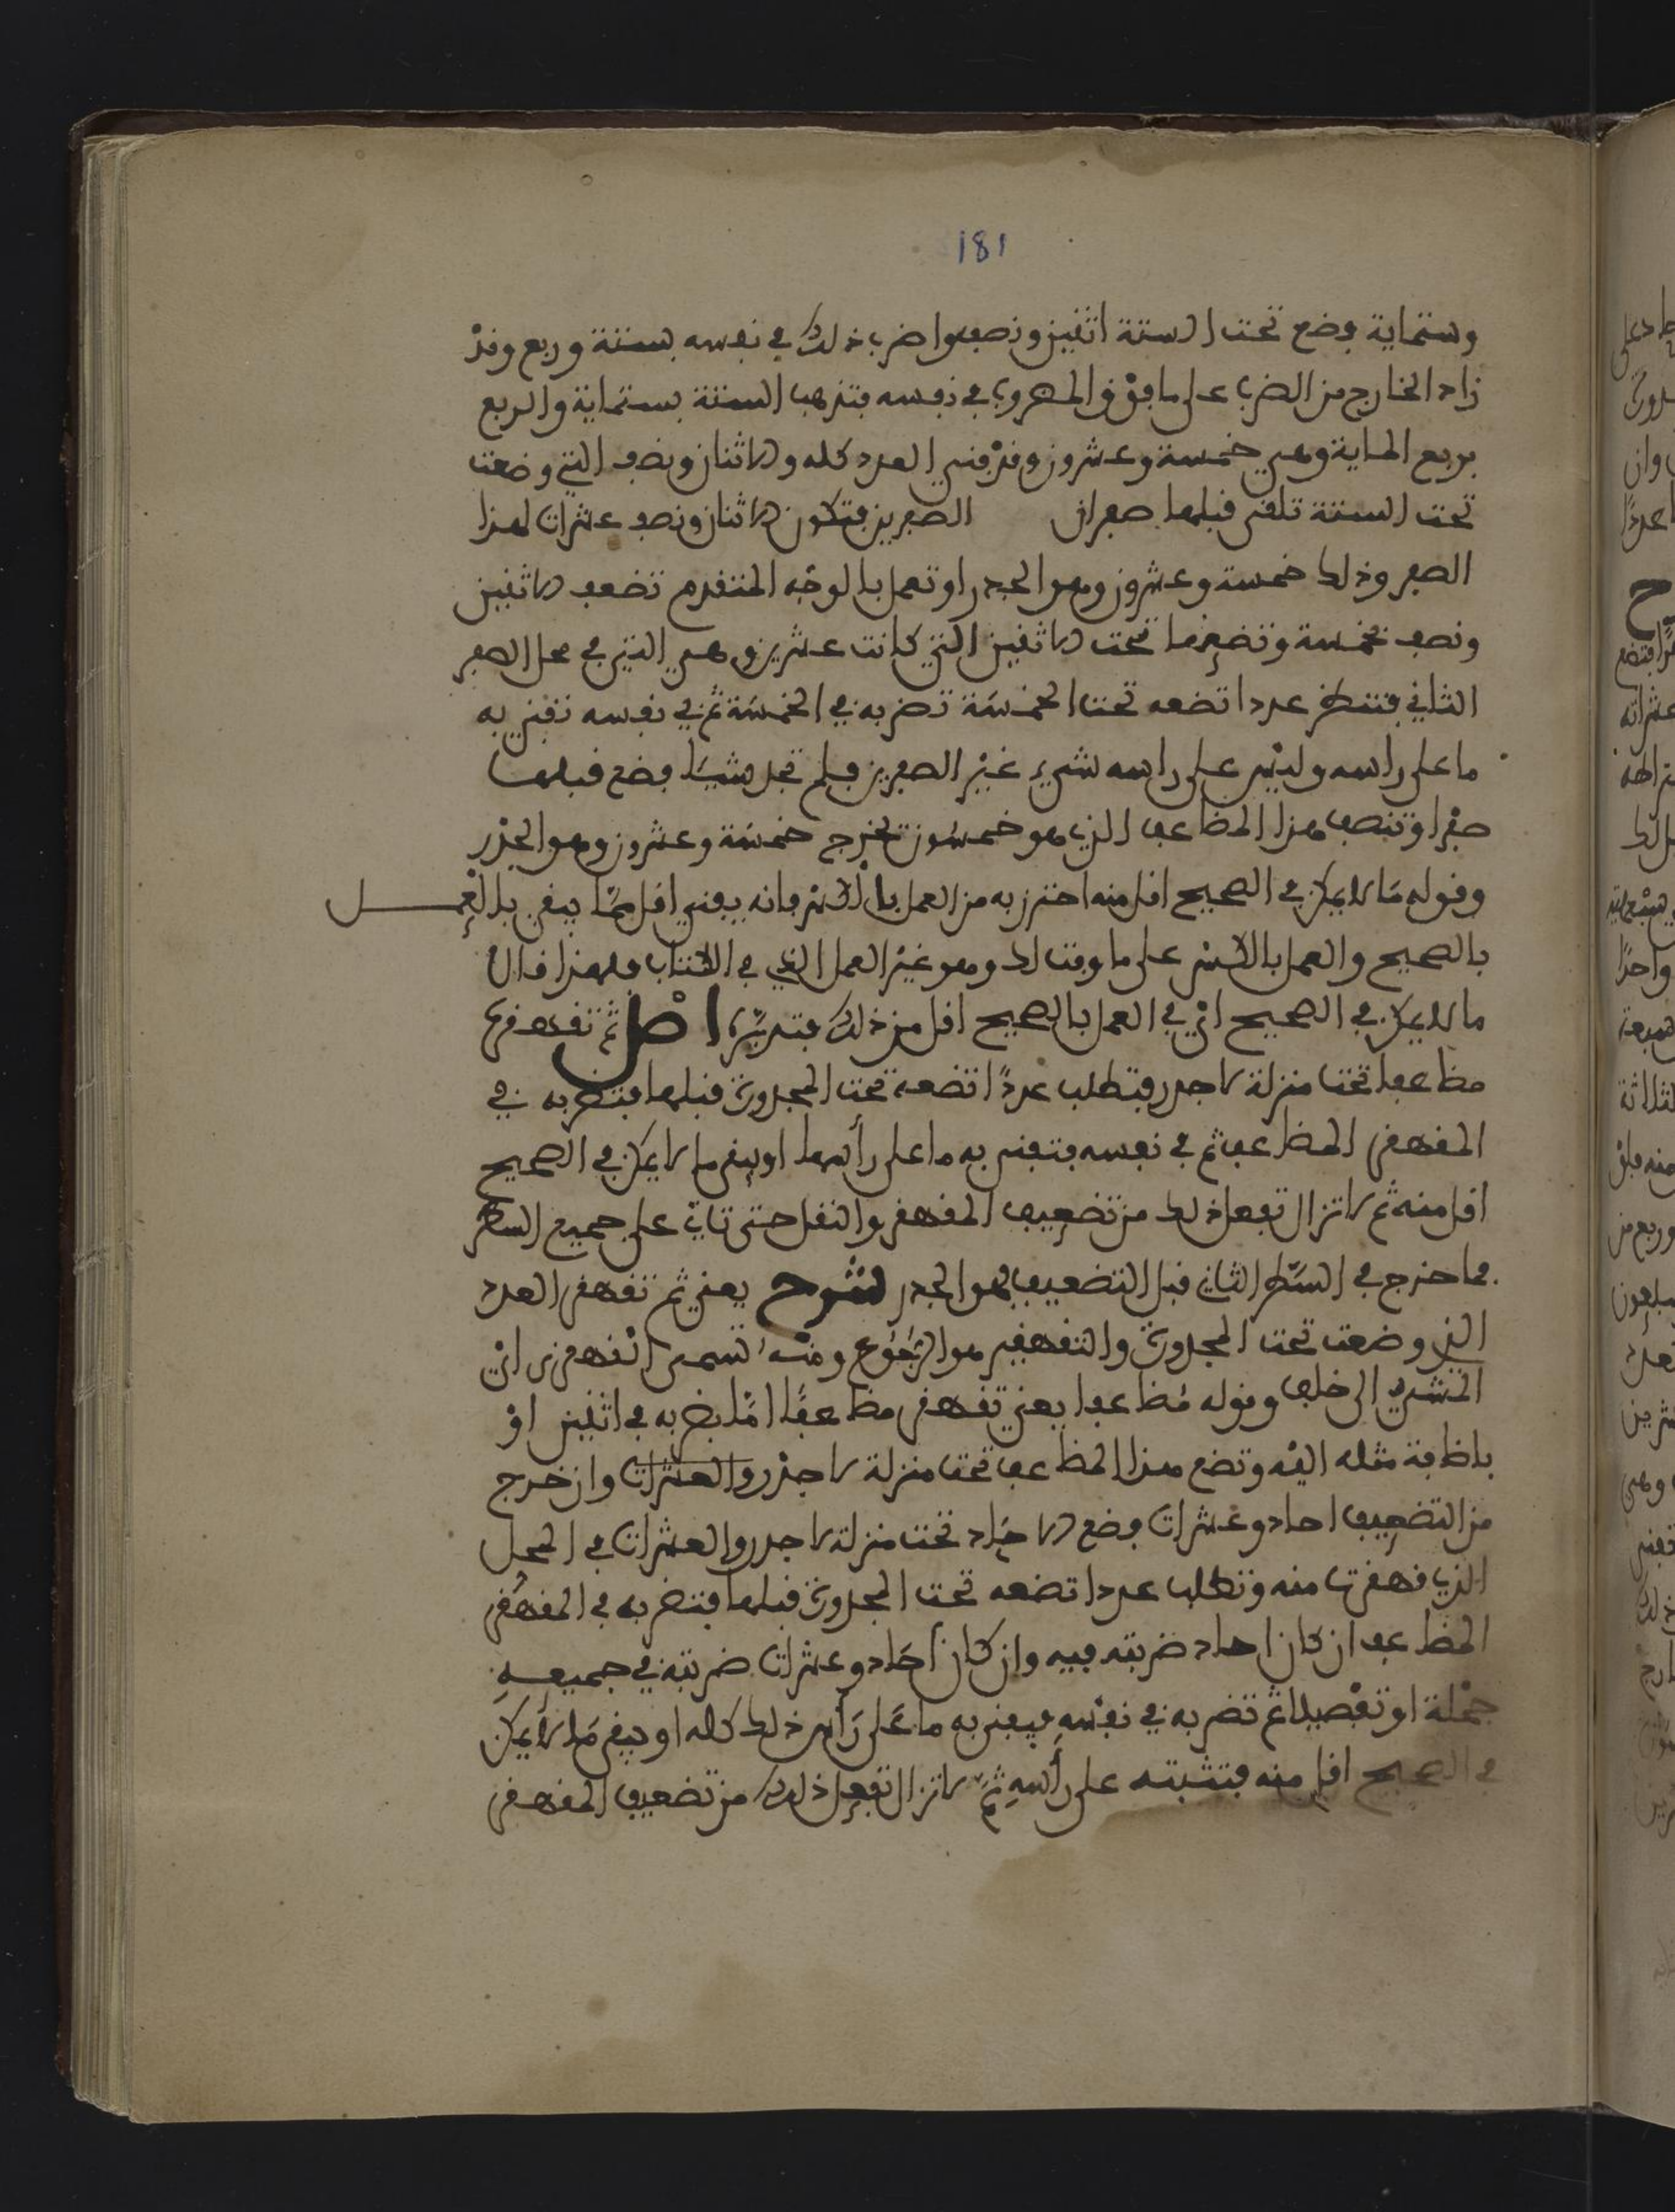 181
وستماية فضع تحت الستة اثنين ونصفا واضرب ذلك في نفسه بستة وربع وقد
زاد الخارج من الضرب على ما فوق المضروب في نفسه فتذهب الستة بستماية والربع
بربع الماية وهي خمسة وعشرون وقد فني العدد كله والاثنان ونصف التي وضعت
تحت الستة تلقى قبلها صفران الصفرين فتكون الاثنان ونصف عشرات لهذا
الصفر وذلك خمسة وعشرون وهو الجدر او تعمل بالوجه المتقدم تضعف الاثنين
ونصف بخمسة وتضعها تحت الاثنين التي كانت عشرين وهي التي في محل الصفر
الثاني فتنظر عددا تضعه تحت الخمسة تضربه في الخمسة ثم في نفسه تفني به
ما على راسه وليس على راسه شيء غير الصفرين فلم تجد شيئا فضع قبلها
صفرا وتنصف هذا المضاعف الذي هو خمسون تخرج خمسة وعشرون وهو الجذر
وقوله ما لا يمكن في الصحيح اقل منه احترز به من العمل بالكسر فانه يفني اقل مما يبقى بالعمل
بالصحيح والعمل بالكسر على ما وقت لك وهو غير العمل الذي في الكتاب فلهذا قال
ما لا يمكن في الصحيح اي في العمل بالصحيح اقل من ذلك فتدبره اصل ثم تقهقره
مضاعفا تحت منزلة لا جدر فتطلب عددا تضعه تحت المجدورة قبلها فتضربه في
المقهقر المضاعف ثم في نفسه فتفني به ما على رأسها او يبقى ما لا يمكن في الصحيح
اقل منه ثم لا تزال تفعل ذلك من تضعيف المقهقر والنقل حتى تاتي على جميع السطر
فما خرج في السطر الثاني قبل التضعيف فهو الجدر شرح يعني ثم تقهقر العدد
الذي وضعت تحت المجدورة والتقهقير هو الرجوع ومنه تسمى القهقرى اي
المشي الى خلف وقوله مضاعفا يعني تقهقر مضاعفا اما بضربه في اثنين او
باضافة مثله اليه وتضع هذا المضاعف تحت منزلة لا جذر والعشرات وان خرج
من التضعيف احاد وعشرات فضع الاحاد تحت منزلة لا جدر والعشرات في المحل
الذي قهقرت منه وتطلب عددا تضعه تحت المجدورة قبلها فتضربه في المقهقر
المضاعف ان كان احاد ضربته فيه وان كان احاد وعشرات ضربته في جميعه
جملة او تفصيلا ثم تضربه في نفسه فيفنى به ما على رأس ذلك كله او يبقى ما لا يمكن
في الصحيح اقل منه فتثبته على رأسه ثم لا تزال تفعل ذلك من تضعيف المقهقر